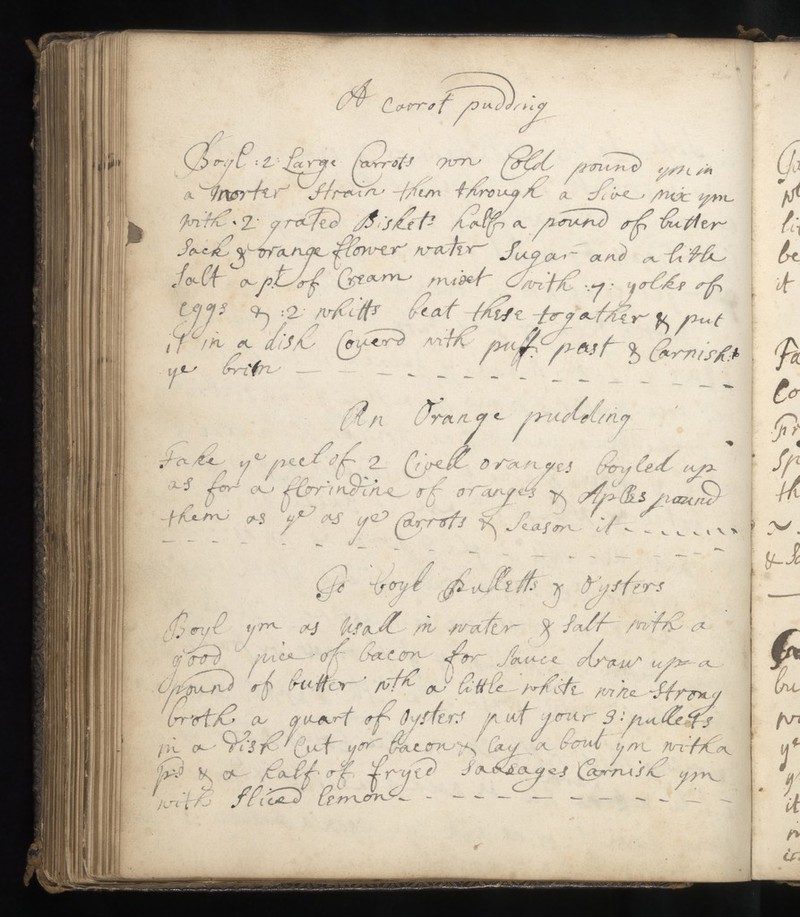 A Carrot pudding
Boyl :2: Large Carrots wn Cold pound ym in
a morter Strain them through a Sive mix ym
with :2: grated Biskets half a pound of butter
Sack & orange flower water Sugar and a little
Salt a pt of Cream mixt with :7: yolks of
eggs & :2: whitts beat these togather & put
it in a dish Coverd with puff past & Garnish
ye brim
An Orange pudding
Take ye peel of 2 Civell oranges boyled up
as for a florindine of oranges & Apls pound
them as ye as ye Carrots & Season it
To boyl Pulletts & Oysters
Boyl ym as usall in water & Salt with a
good pice of bacon for Sauce draw up a
pound of butter wth a little white wine Strong
broth a quart of Oysters put your 3: pullets
in a Dish Cut yor bacon & lay a bout ym with a
pd & a half of fryed Sausages Garnish ym
with Sliced lemon